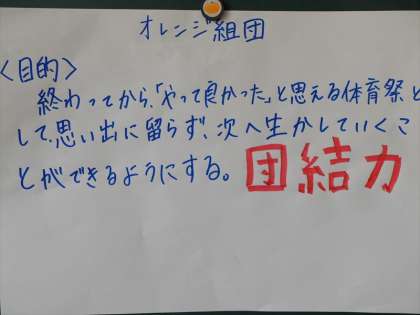 オレンジ組団
<目的>
終わってから、「やって良かった」と思える体育祭と
して、思い出に留らず、次へ生かしていくこ
とができるようにする。 団結力